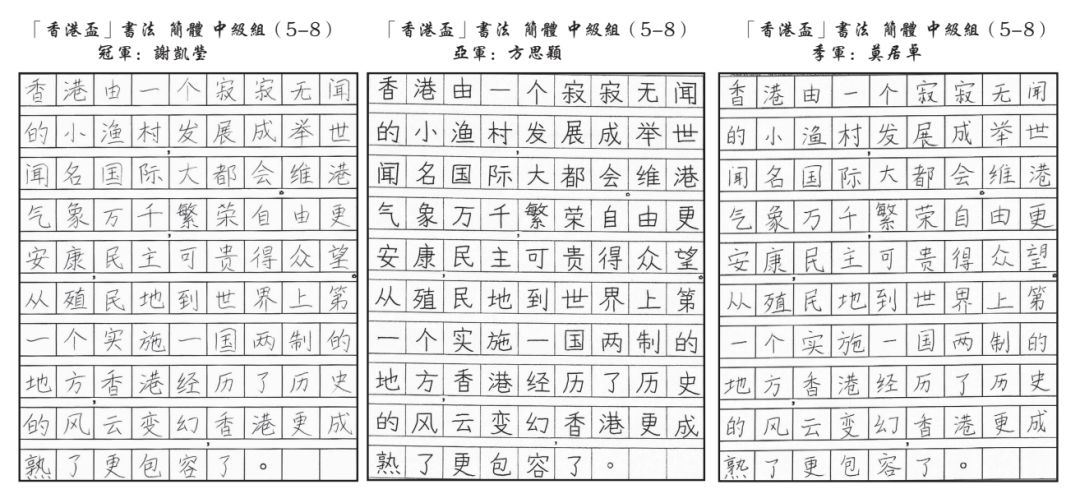 「香港盃」書法 簡體 中級組（5-8）
冠軍：謝凱瑩
香港由一个寂寂无闻
的小渔村，发展成举世
闻名国际大都会。维港
气象万千，繁荣自由更
安康，民主可贵得众望。
从殖民地到世界上第
一个实施一国两制的
地方，香港经历了历史
的风云变幻，香港更成
熟了更包容了。
「香港盃」書法 簡體 中級組（5-8）
亞軍：方思穎
香港由一个寂寂无闻
的小渔村，发展成举世
闻名国际大都会。维港
气象万千，繁荣自由更
安康，民主可贵得众望。
从殖民地到世界上第
一个实施一国两制的
地方，香港经历了历史
的风云变幻，香港更成
熟了更包容了。
「香港盃」書法 簡體 中級組（5-8）
季軍：莫居卓
香港由一个寂寂无闻
的小渔村，发展成举世
闻名国际大都会。维港
气象万千，繁荣自由更
安康，民主可贵得众望。
从殖民地到世界上第
一个实施一国两制的
地方，香港经历了历史
的风云变幻，香港更成
熟了更包容了。